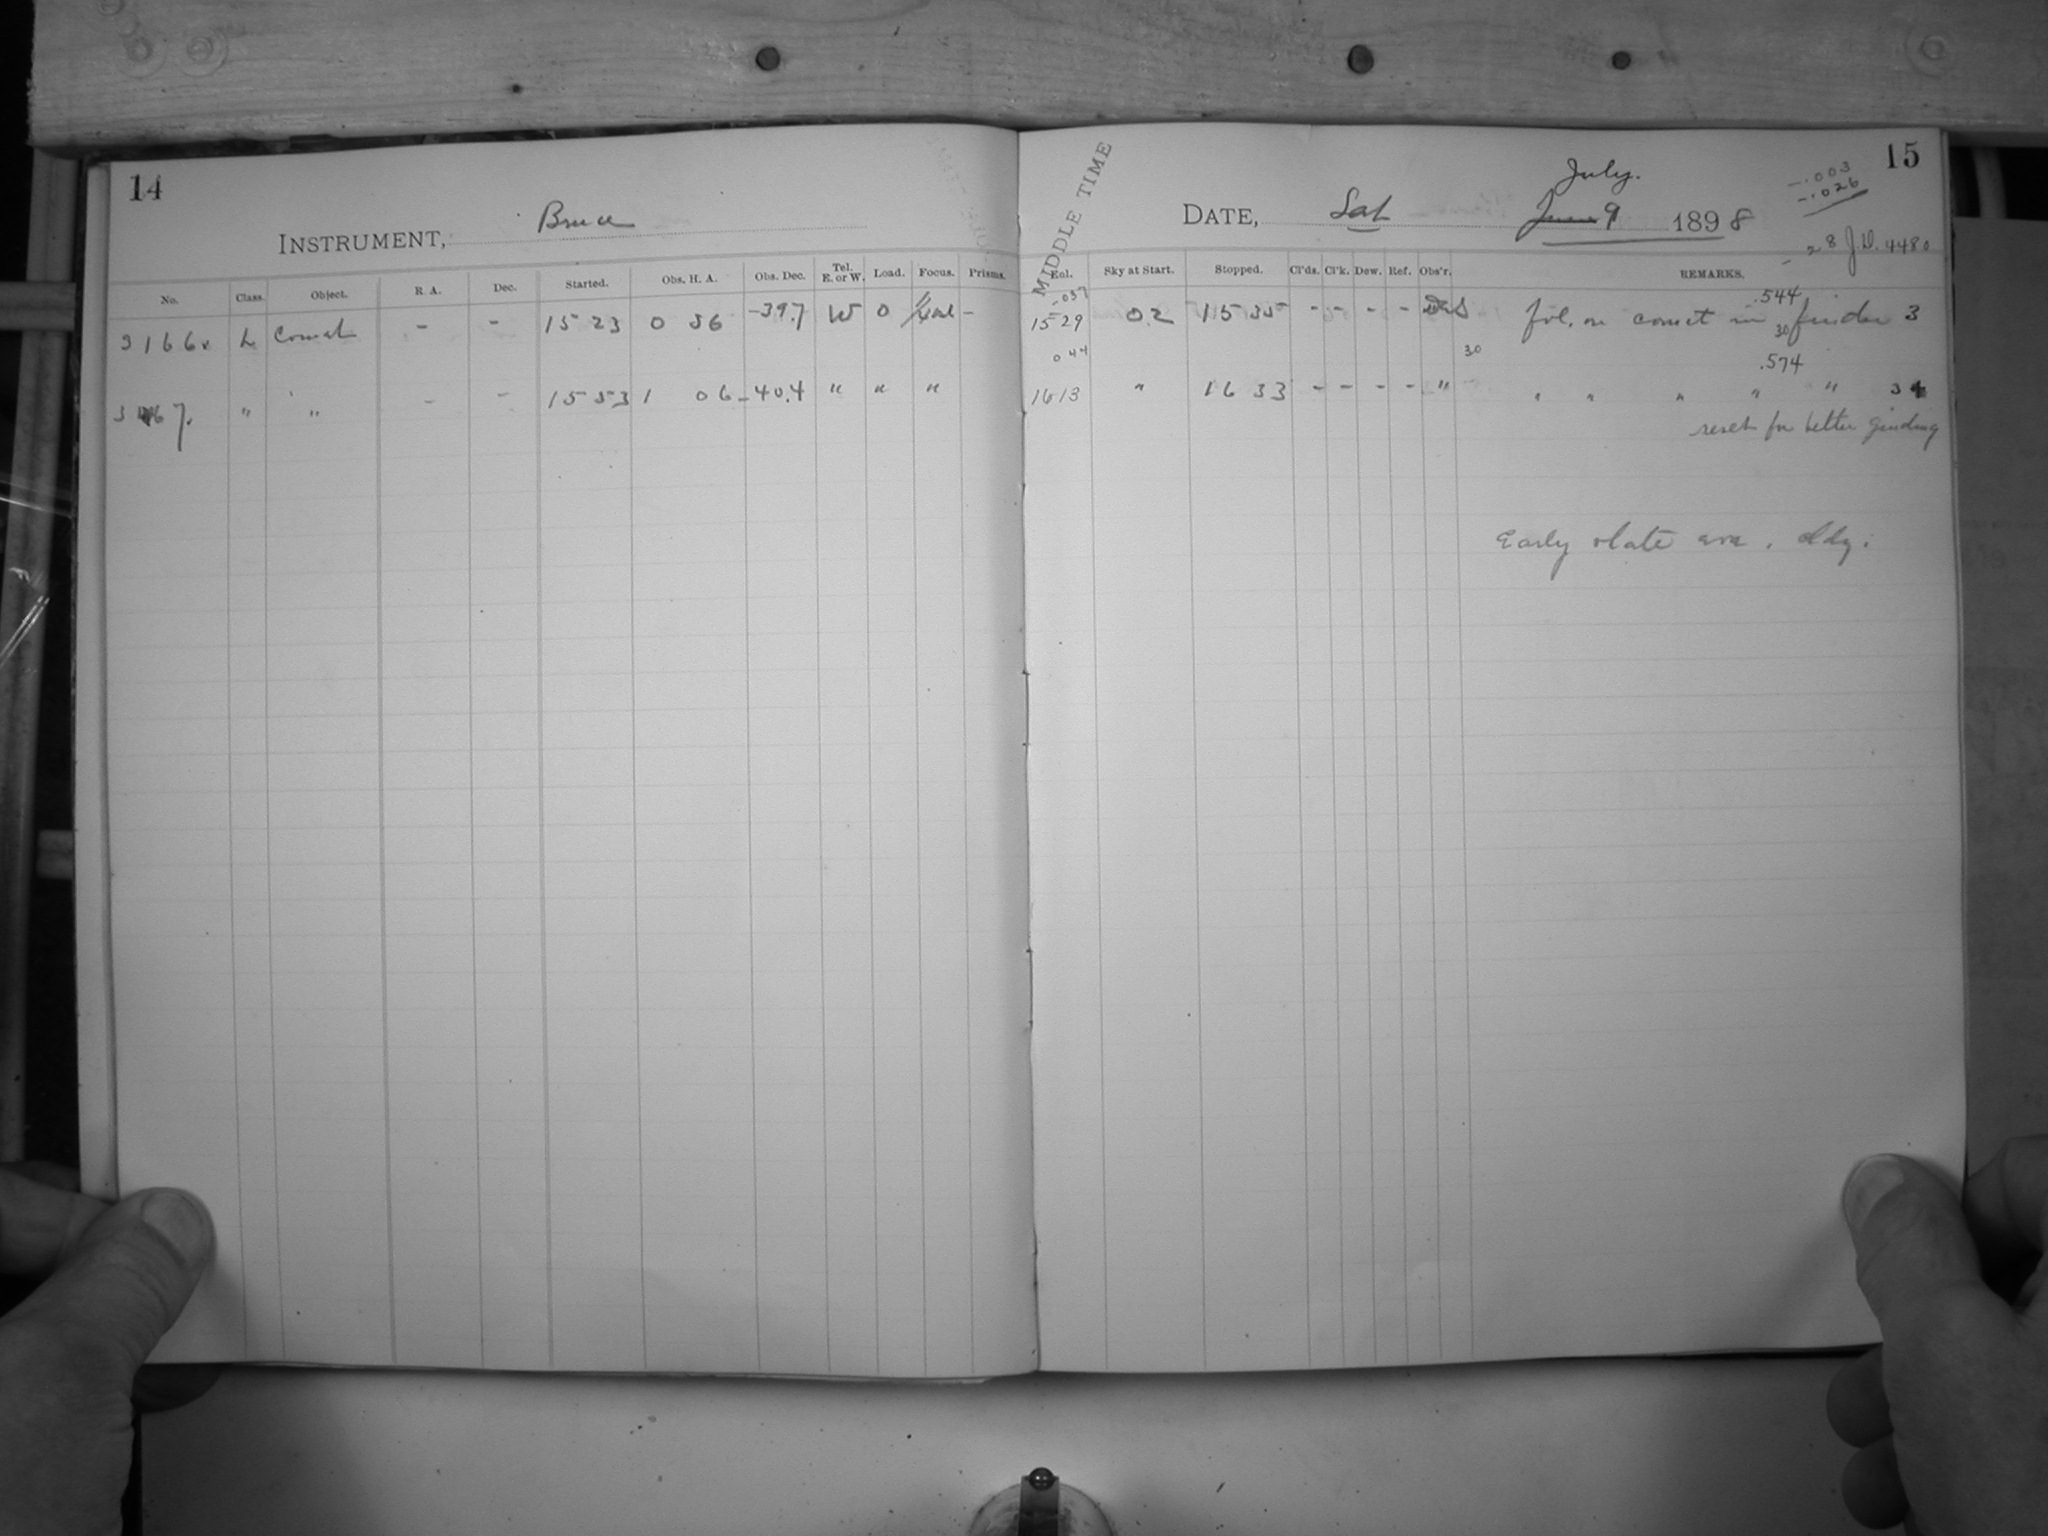 14
INSTRUMENT, Bruce
No. Class. Object. R. A. Dec. Started. Obs. H. A. Obs. Dec. Tel. E. or W. Load. Focus. Prisms.
3166 L Comet - - 15 23 0 56 -39.7 W 0 -
" " - - 15 53 1 06 -40.4 " " "
15
MIDDLE TIME
DATE, Sat July. June 9 1898
-.003
-.026
28 J.D. 4480
Sky at Start. Stopped. Cl'ds. Cl'k. Dew. Ref. Obs'r. REMARKS.
-.037 .544
15 29 02 15 35 - - - - fol. on comet in finder 3
044 30 30 .574
16 13 " 16 33 - - - - " " " " " " 3
reset for better
Early